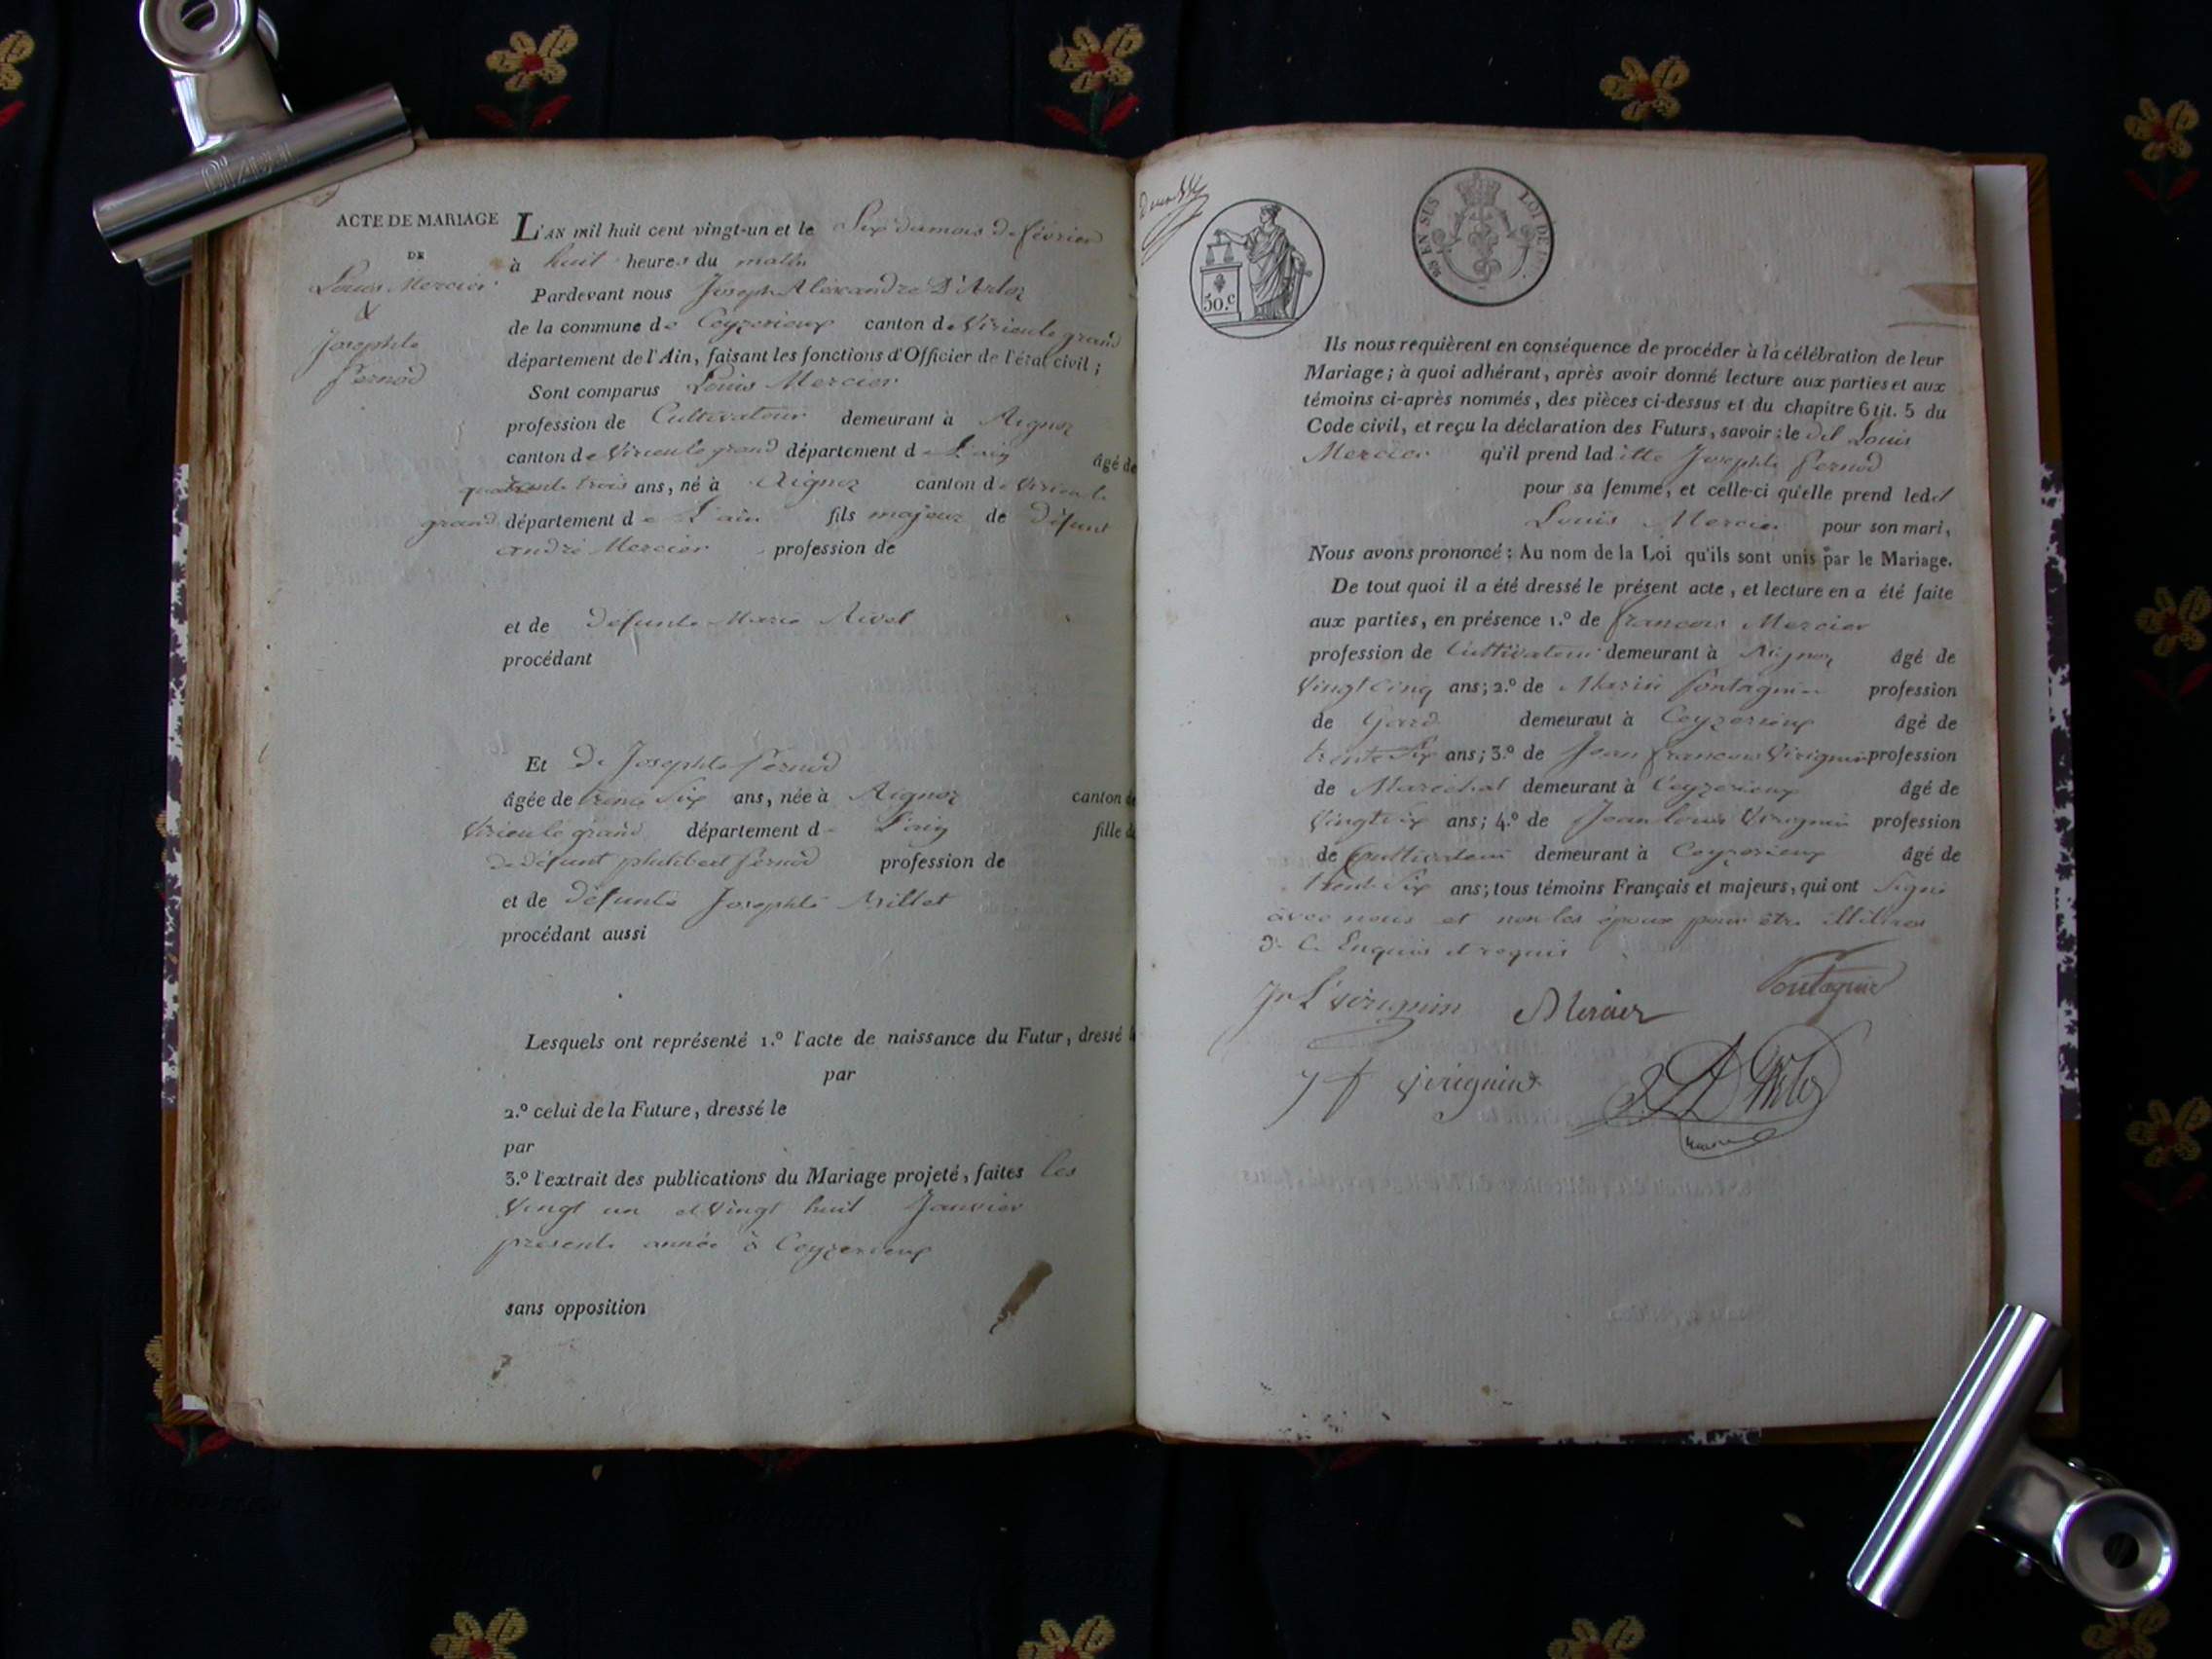 ACTE DE MARIAGE
DE
Louis Mercier
&
Josephte
Pernod
L'AN mil huit cent vingt-un et le Six du mois de février
à huit heures du matin
Pardevant nous Joseph Alexandre D'Arloz
de la commune de Ceyzerieux canton de Virieu le grand
département de l'Ain, faisant les fonctions d'Officier de l'état civil ;
Sont comparus Louis Mercier
profession de Cultivateur demeurant à Aignoz
canton de Virieu le grand département de L'ain âgé de
quarante trois ans, né à Aignoz canton de Virieu le
grand département de L'ain fils majeur de Défunt
andré Mercier profession de
et de défunte Marie Rivet
procédant
Et de Josephte Pernod
âgée de trente Six ans, née à Aignoz canton de
Virieu le grand département de L'ain fille de
de défunt philibert Pernod profession de
et de défunte Josephte Millet
procédant aussi
Lesquels ont représenté 1.º l'acte de naissance du Futur, dressé
par
2.º celui de la Future, dressé le
par
3.º l'extrait des publications du Mariage projeté, faites les
Vingt un et Vingt huit Janvier
presente année à Ceyzerieux
sans opposition
50.c
LOI DE
Ils nous requièrent en conséquence de procéder à la célébration de leur
Mariage ; à quoi adhérant, après avoir donné lecture aux parties et aux
témoins ci-après nommés, des pièces ci-dessus et du chapitre 6 tit. 5 du
Code civil, et reçu la déclaration des Futurs, savoir : le dit Louis
Mercier qu'il prend laditte Josephte Pernod
pour sa femme, et celle-ci qu'elle prend ledit
Louis Mercier pour son mari,
Nous avons prononcé : Au nom de la Loi qu'ils sont unis par le Mariage.
De tout quoi il a été dressé le présent acte, et lecture en a été faite
aux parties, en présence 1.º de francois Mercier
profession de Cultivateur demeurant à Aignoz âgé de
Vingt Cinq ans ; 2.º de Marin Pontagnier profession
de Gard demeurant à Ceyzerieux âgé de
trente Six ans ; 3.º de Jean francois Virignin profession
de Maréchal demeurant à Ceyzerieux âgé de
Vingt Six ans ; 4.º de Jean louis Virignin profession
de Cultivateur demeurant à Ceyzerieux âgé de
trente Six ans ; tous témoins Français et majeurs, qui ont Signé
avec nous et non les époux pour être illitires
de Ce Enquis et requis
Jn L Virignin Mercier Pontagnier
J f Virignin J A D'Arloz